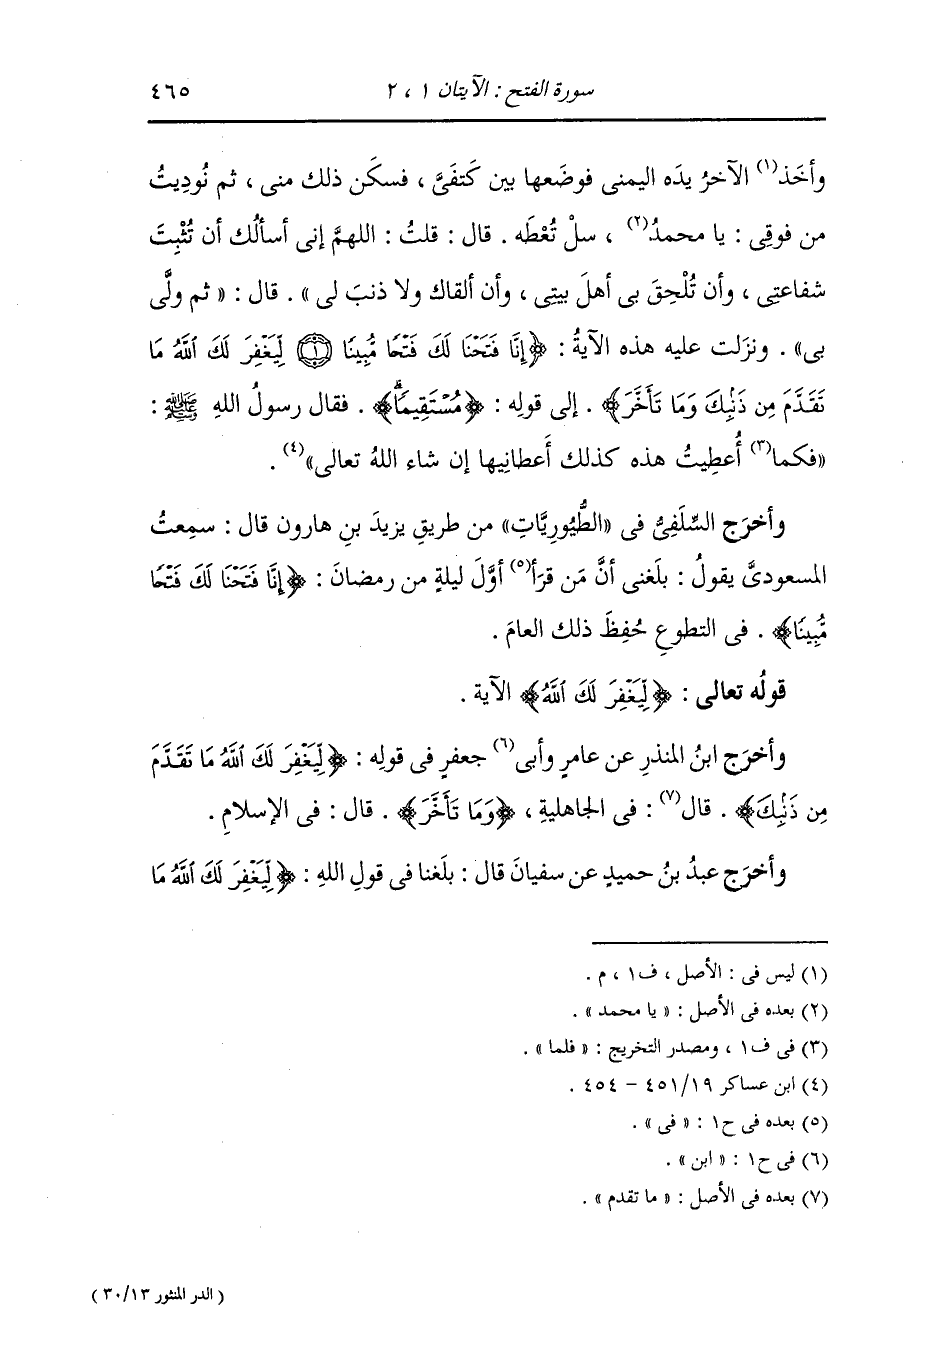 سورة الفتح : الآيتان ١ ، ٢ ٤٦٥
وأخَذ(١) الآخرُ يدَه اليمنى فوضَعها بين كَتفَىَّ ، فسكَن ذلك منى ، ثم نُودِيتُ
من فوقِى : يا محمدُ(٢) ، سلْ تُعْطَه . قال : قلتُ : اللهمَّ إنى أسألُك أن تُثْبِتَ
شفاعتِى ، وأن تُلْحِقَ بى أهلَ بيتِى ، وأن ألقاك ولا ذنبَ لى» . قال : « ثم ولَّى
بى» . ونزَلت عليه هذه الآيةُ : ﴿إِنَّا فَتَحْنَا لَكَ فَتْحًا مُّبِينًا ۝١ لِّيَغْفِرَ لَكَ ٱللَّهُ مَا
تَقَدَّمَ مِن ذَنۢبِكَ وَمَا تَأَخَّرَ﴾ . إلى قولِه : ﴿مُّسْتَقِيمًا﴾ . فقال رسولُ اللهِ ﷺ :
«فكما(٣) أُعطِيتُ هذه كذلك أَعطانِيها إن شاء اللهُ تعالى»(٤) .
وأخرَج السِّلَفِىُّ فى «الطُّيُورِيَّاتِ» من طريقِ يزيدَ بنِ هارون قال : سمِعتُ
المسعودىَّ يقولُ : بلَغنى أنَّ مَن قرَأ(٥) أوَّلَ ليلةٍ من رمضانَ : ﴿إِنَّا فَتَحْنَا لَكَ فَتْحًا
مُّبِينًا﴾ . فى التطوعِ حُفِظَ ذلك العامَ .
قولُه تعالى : ﴿لِّيَغْفِرَ لَكَ ٱللَّهُ﴾ الآية .
وأخرَج ابنُ المنذرِ عن عامرٍ وأبى(٦) جعفرٍ فى قولِه : ﴿لِّيَغْفِرَ لَكَ ٱللَّهُ مَا تَقَدَّمَ
مِن ذَنۢبِكَ﴾ . قال(٧) : فى الجاهليةِ ، ﴿وَمَا تَأَخَّرَ﴾ . قال : فى الإسلامِ .
وأخرَج عبدُ بنُ حميدٍ عن سفيانَ قال : بلَغنا فى قولِ اللهِ : ﴿لِّيَغْفِرَ لَكَ ٱللَّهُ مَا
(١) ليس فى : الأصل ، ف١ ، م .
(٢) بعده فى الأصل : « يا محمد » .
(٣) فى ف١ ، ومصدر التخريج : « فلما » .
(٤) ابن عساكر ٤٥١/١٩ - ٤٥٤ .
(٥) بعده فى ح١ : « فى » .
(٦) فى ح١ : « ابن » .
(٧) بعده فى الأصل : « ما تقدم » .
( الدر المنثور ٣٠/١٣ )